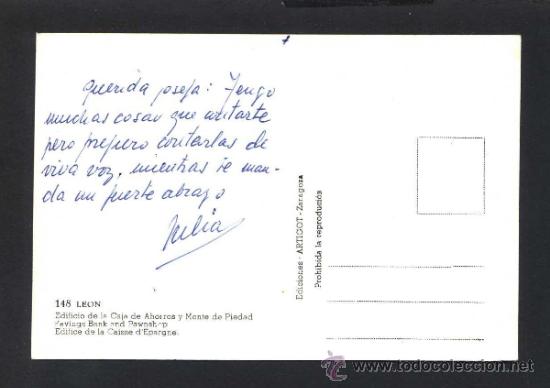 Querida josefa: Tengo
muchas cosas que contarte
pero prefiero contarlas de
viva voz, mientras te man-
da un fuerte abrazo
Julia
148 LEON
Edificio de la Caja de Ahorros y Monte de Piedad
Savings Bank and Pawnshop
Edifice de la Caisse d'Epargne.
Ediciones - ARTIGOT - Zaragoza
Prohibida la reproducción
todocoleccion.net